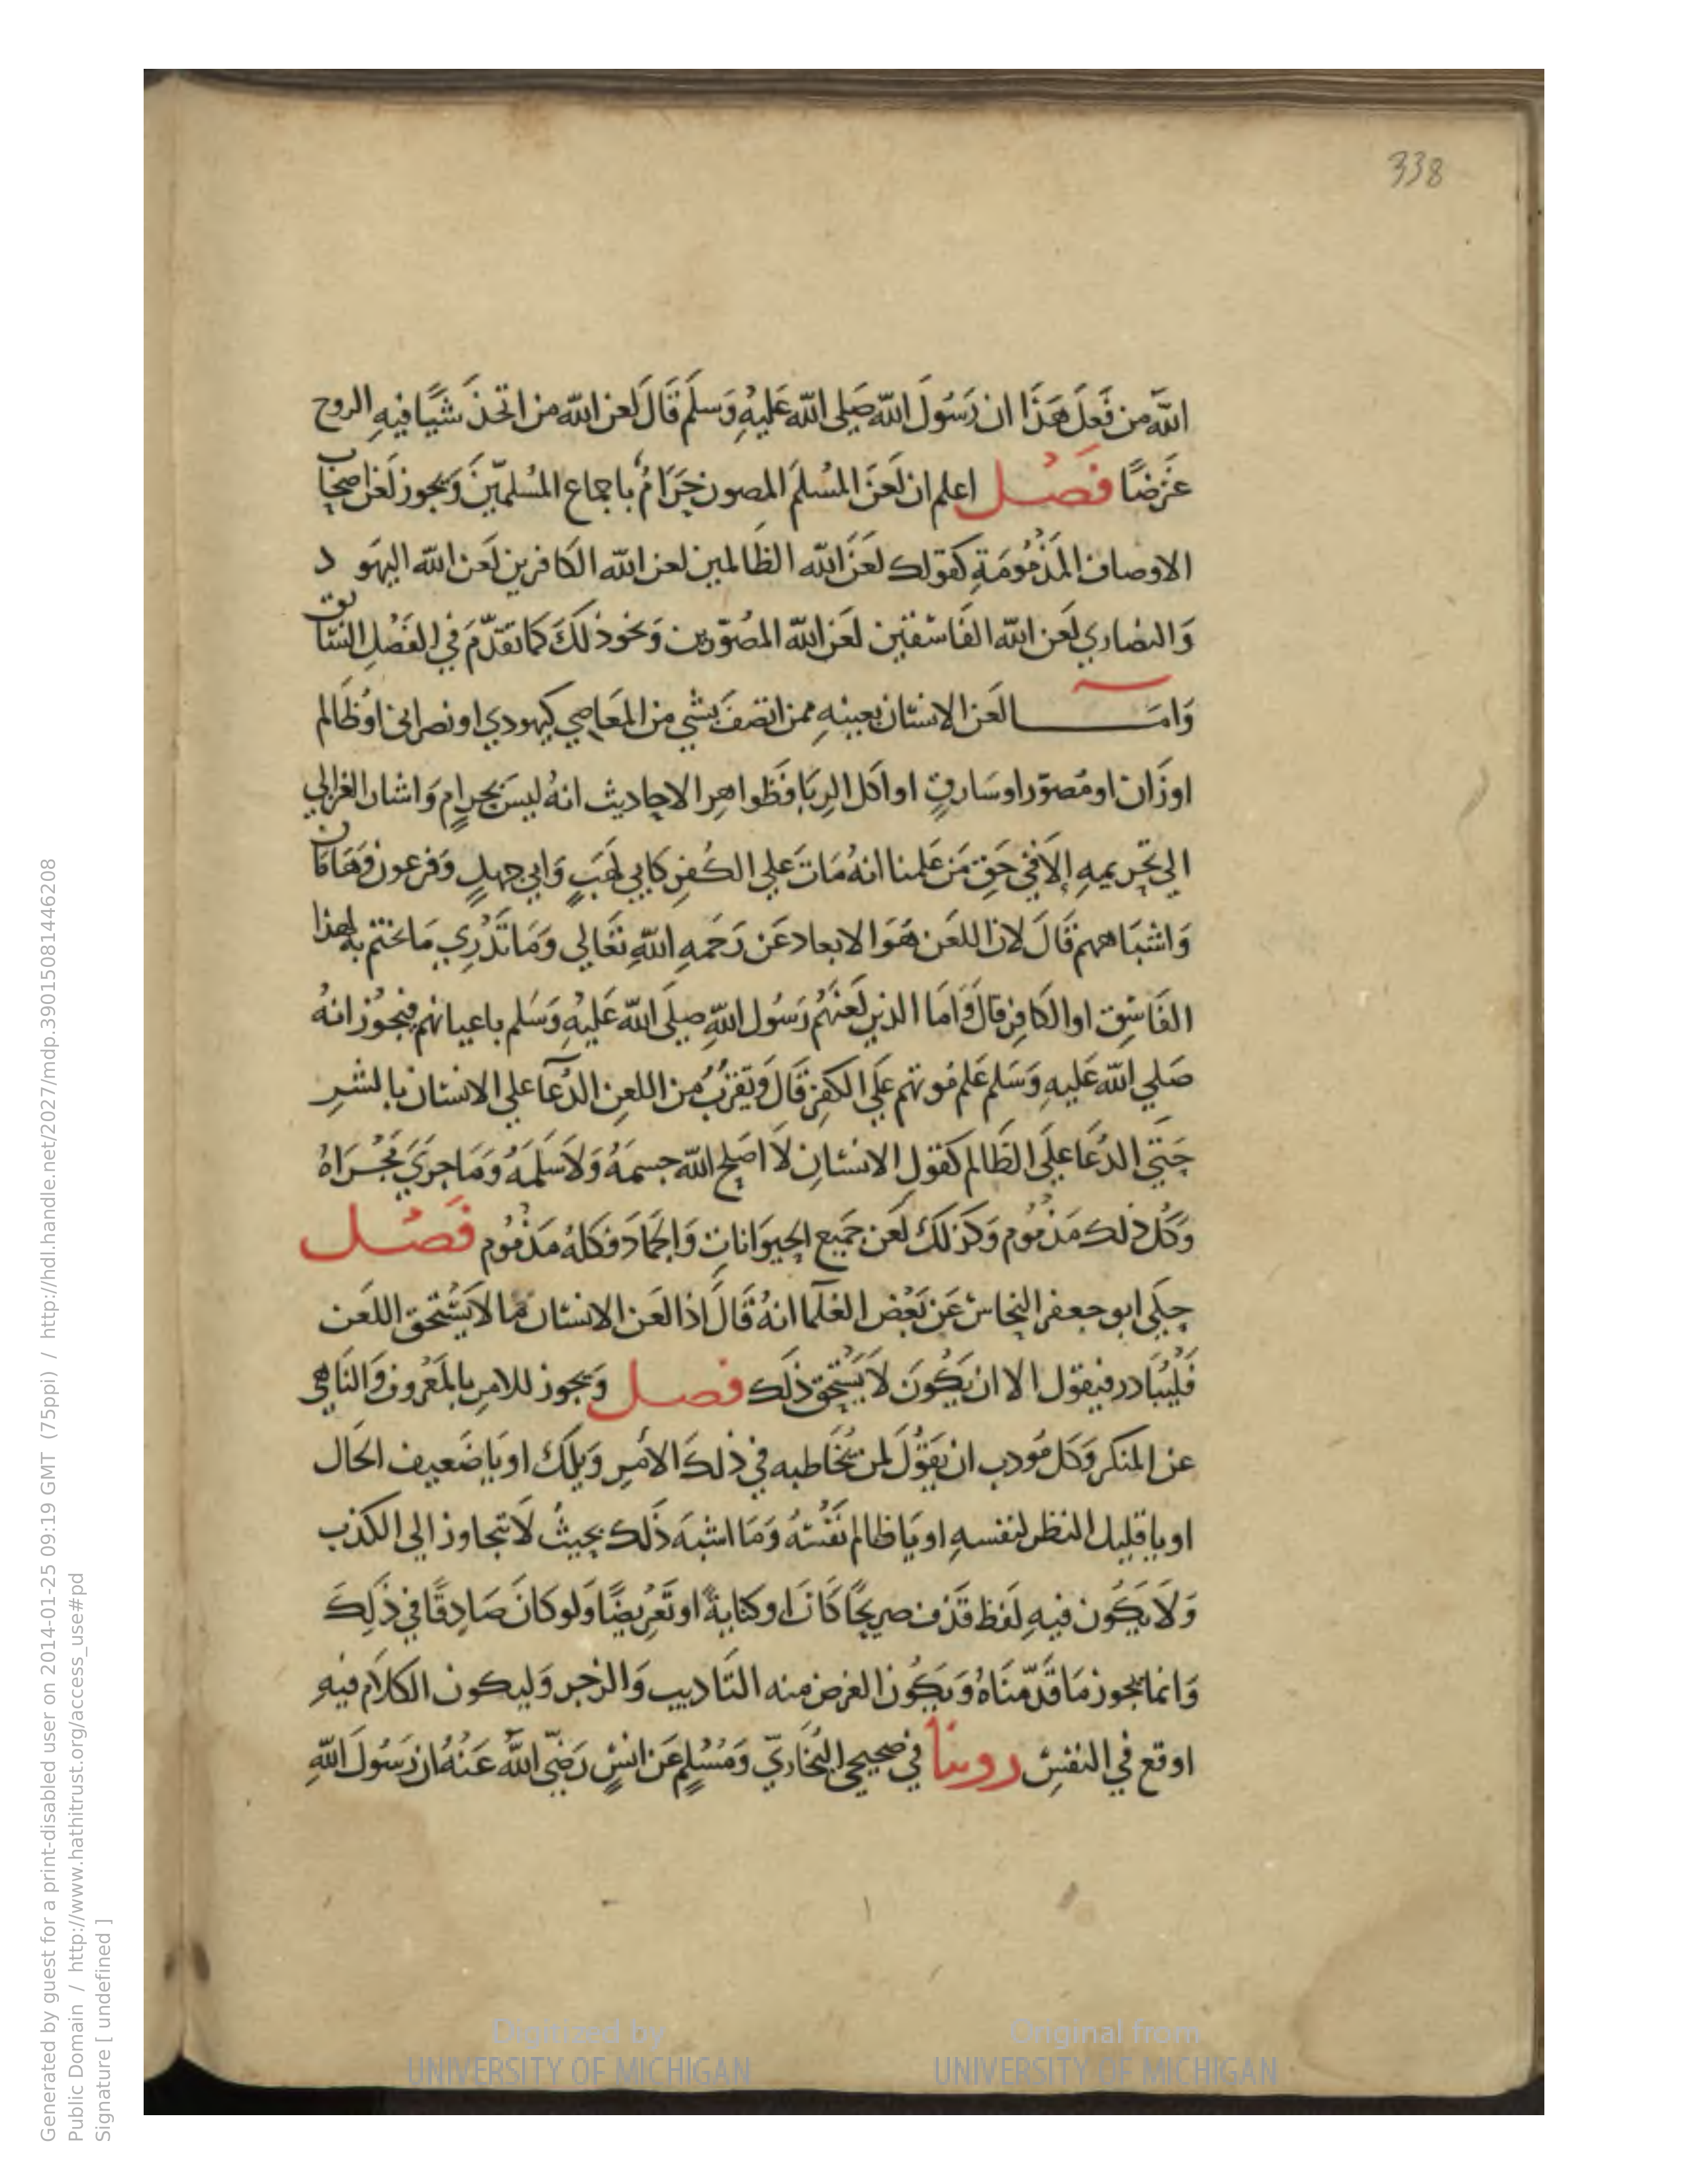 338
اللَّه من فَعَلَ هَذَا ان رَسُولَ اللَّه صَلى اللَّه عَليْهِ وَسلَّم قَالَ لعن اللَّه من اتخذ شيًا فيهِ الروح
غرضًا فصل اعلم ان لَعنَ المُسْلم المصون حَرَامُ باجماع المُسلمينَ وَيجوز لَعْن اصحاب
الاوصاف المَذْمُومَةِ كقولك لعَنَ اللَّه الظالمين لعن اللَّه الكافرين لَعن اللَّه اليهَود
وَالنصاري لَعن اللَّه الفَاسقين لعَن اللَّه المصَوّرين وَنحوذلكَ كما تقدّمَ في الفَصْل السَّابق
وَامَّا لعَن الانسان بعينهِ ممن اتصَفَ بشيٍ من المعَاصي كيهودي او نصراني اوظَالم
اوزَان او مُصوّر اوسَارقٍ او اكل الرِبَا فظَواهِر الاحاديث انهُ ليسَ بحرامٍ وَاشار الغزالي
الي تحريمهِ إلاَّ في حَقِ مَن عَلمنا انهُ مَاتَ عَلي الكُفرِ كابي لهَبٍ وَابي جهلٍ وَفرعون وَهَامَان
وَاشبَاههم قَالَ لان اللعَن هُوَ الابعاد عَن رَحْمةِ اللَّهِ تعَالي وَمَا نَدْرِي مَا يختم بهِ لهذا
الفَاسِق اوالكَافِر قالَ وَامَا الذين لعَنَهُم رَسُول اللَّهِ صلَى اللَّه عَليْهِ وَسَلم باعيانهم فيجوز انهُ
صَلي اللَّه عَليهِ وَسَلم عَلم مُوتهم عَلَى الكفرِ قَالَ وَيَقرُبُ من اللعن الدُعَآ علي الانسان بالشرِ
حَتي الدُعَا علَى الظَالم كقولِ الانسانِ لاَ اصَلح اللَّه جسمَهُ وَلاَ سَلمَهُ وَمَا جرَيَ مَجْرَاهُ
وَكُل ذلك مَذْمُوم وَكذلكَ لَعن جَميع الحيوَاناتِ وَالجَمَاد فكلهُ مَذْمُوم فصل
حكي ابو جعفر النحاس عَن بَعْض العُلمآ انهُ قَالَ اذا لعَن الانسان مَا لاَ يَسْتحق اللعَن
فَليُبَادر فيقول الا ان يَكُونَ لاَ يَسْتحق ذلك فصل وَيجوز للامرِ بالمَعْروف وَالنَاهي
عن المنكر وَكل مُودب ان يَقوُلَ لمن يُخَاطبه في ذلكَ الامْرِ وَيلَكَ او يَا ضَعيف الحَال
او يا قليل النظر لنفسهِ او يَا ظالم نفْسَهُ وَمَا اشبَهَ ذَلك بحيثُ لاَ تجاوز الي الكذب
وَلاَ يَكُون فيهِ لفَظ قذف صريحًا كانَ او كنايةً او تَعْرِيضًا وَلو كانَ صَادِقًا في ذَلِكَ
وَانما يجوز مَا قَدّمنَاهُ وَيَكُون الغرض منه التَاديب وَالزجر وَليكون الكلاَم فيهِ
اوقع في النفسِ روينا في صَحيحي البُخَاريّ وَمُسْلمٍ عَن انسٍ رَضِيَ اللَّهُ عَنْهُ ان رَسُولَ اللَّهِ
Digitized by
UNIVERSITY OF MICHIGAN
Original from
UNIVERSITY OF MICHIGAN
Generated by guest for a print-disabled user on 2014-01-25 09:19 GMT (75ppi) / http://hdl.handle.net/2027/mdp.39015081446208
Public Domain / http://www.hathitrust.org/access_use#pd
Signature [ undefined ]